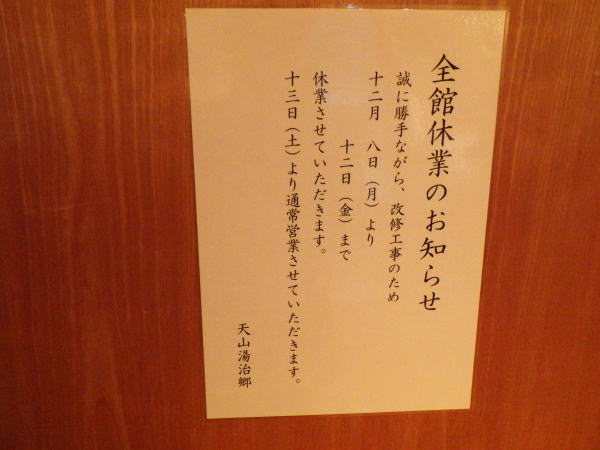 全館休業のお知らせ
誠に勝手ながら、改修工事のため
十二月 八日（月）より
十二日（金）まで
休業させていただきます。
十三日（土）より通常営業させていただきます。
天山湯治郷